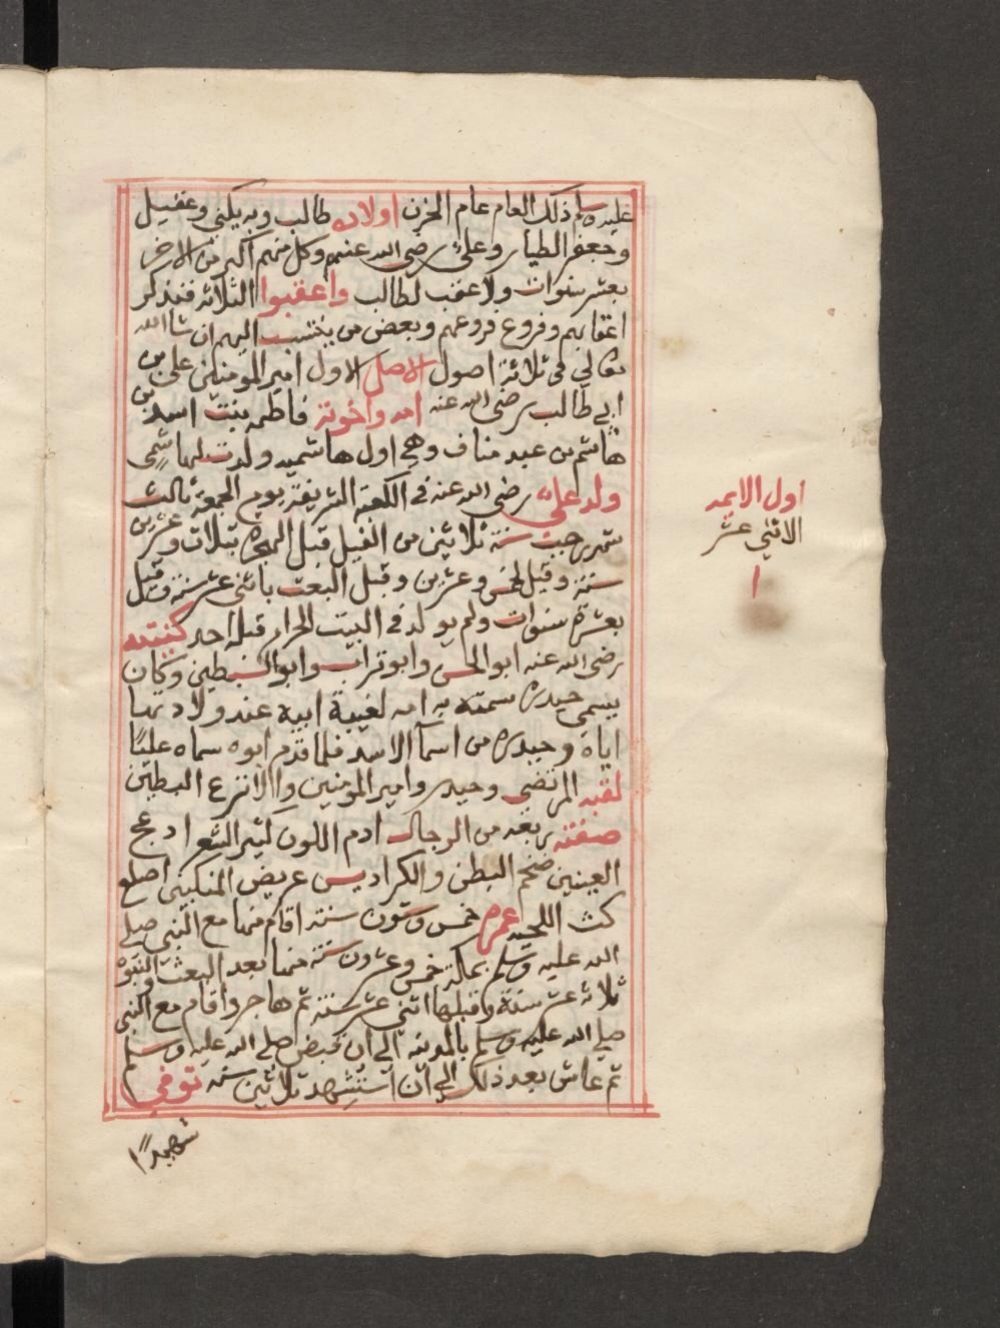 عليه وسلم ذلك العام عام الحزن اولاده طالب وبه يكنى وعقيل
وجعفر الطيار وعلي رضي الله عنهم وكل منهم اكبر من الاخر
بعشر سنوات ولا عقب لطالب واعقبوا الثلاثة فنذكر
اعقابهم وفروع فروعهم وبعض من ينتسب اليهم ان شا الله
تعالي في ثلاثة اصول الاصل الاول امير المومنين علي بن
ابي طالب رضي الله عنه امه واخوته فاطمه بنت اسد بن
هاشم بن عبد مناف وهي اول هاشميه ولدت لهاشمي
ولد علي رضي الله عنه في الكعبة الشريفة يوم الجمعة ثالث
شهر رجب سنة ثلاثين من الفيل قبل الهجرة بثلاث وعشرين
سنة وقيل لخمس وعشرين وقبل البعث باثني عشر سنة وقيل
بعشرة سنوات ولم يولد في البيت الحرام قبله احد كنيته
رضي الله عنه ابو الحسن وابو تراب وابو السبطين وكان
يسمى حيدرة سمته به امه لغيبة ابيه عند ولادتها
اياه وحيدرة من اسمآ الاسد فلما قدم ابوه سماه عليًا
لقبه المرتضى وحيدر وامير المومنين والانزع البطين
صفته ربعه من الرجال ادم اللون كثير الشعر ادعج
العينين ضخم البطن والكراديس عريض المنكبين اصلع
كث اللحيه عمره خمس وستون سنة اقام منها مع النبي صلي
الله عليه وسلم بمكة خمس وعشرون سنة منها بعد البعث والنبوة
ثلاثة عشر سنة وقبلها اثني عشر سنة ثم هاجر واقام مع النبي
صلي الله عليه وسلم بالمدينه الي ان قبض صلي الله عليه وسلم
ثم عاش بعد ذلك الي ان استشهد ثلاثين سنه توفي
شهيدًا
اول الايمه
الاثني عشر
١